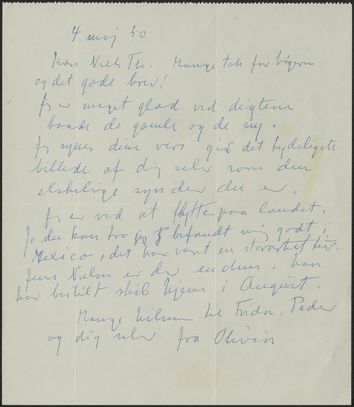 4 maj 50
Kære Niels Th. Mange tak for bogen
og det gode brev!
Jeg er meget glad ved digtene
baade de gamle og de ny.
Jeg synes dine vers gir det tydeligste
billede af dig selv som den
elskelige synder du er.
Jeg er ved at flytte paa landet.
Jo du kan tro jeg befandt mig godt i
Mexico, det har været en storartet tur.
Jens Nielsen er der endnu. han
har bestilt skib hjem i August.
Mange hilsner til Frida, Peder
og dig selv fra Olivia